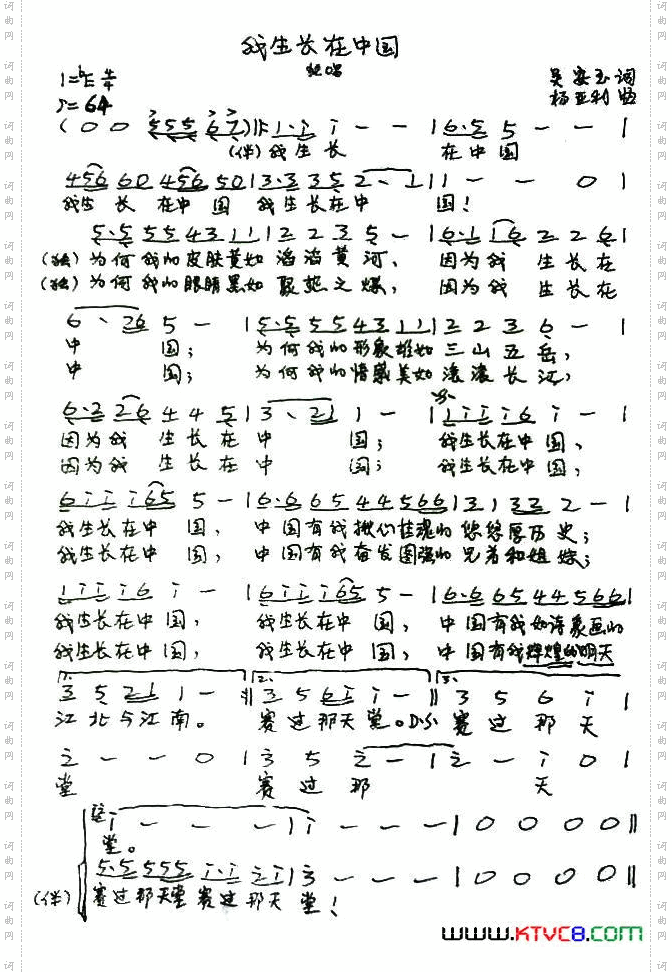 我生长在中国
1=ᵇE 4/4
♩=64
吴安玉 词
杨亚利 曲
(0 0 555 67)‖: 1·1 1 - - | 6·5 5 - - |
(伴)我生长 在中国
456 60 456 50 | 3·3 35 2 - 1 | 1 - - 0 |
我生长 在中国 我生长在中 国!
5·5 55 43 11 | 2 2 3 5 - | 6·1 16 2 2 6 |
(独)为何我的皮肤黄如滔滔黄河, 因为我 生长在
(独)为何我的眼睛黑如聚能之煤, 因为我 生长在
6 · 26 5 - | 5·5 55 43 11 | 2 2 3 6 - |
中 国; 为何我的形象雄如三山五岳,
中 国; 为何我的情感美如滚滚长江,
6·2 26 4 4 5 | 3 · 21 1 - | 1 1 1 1 6 1 - |
因为我 生长在 中 国; 我生长在中国,
因为我 生长在 中 国; 我生长在中国,
6 1 1 1 65 5 - | 6·6 65 44 566 | 3 1 33 2 - |
我生长在中 国, 中国有我揪心挂魂的悠悠厚历史;
我生长在中 国, 中国有我奋发图强的兄弟和姐妹;
1 1 1 1 6 1 - | 6 1 1 1 65 5 - | 6·6 65 44 566 |
我生长在中国, 我生长在中 国, 中国有我如诗象画的
我生长在中国, 我生长在中 国, 中国有我辉煌的明天
1. 2. 3.
3 5 21 1 - :‖ 3 5 61 1 - ‖ 3 5 6 1 |
江北与江南。 赛过那天堂。D.S. 赛过那天
2 - - 0 | 3 5 2 - | 2 - 1 0 |
堂 赛过那 天
1 - - - | 1 - - - | 0 0 0 0 ‖
堂。
5·5 555 1·1 21 | 3 - - - | 0 0 0 0 ‖
(伴) 赛过那天堂赛过那天 堂!
www.KTVC8.com
词曲网